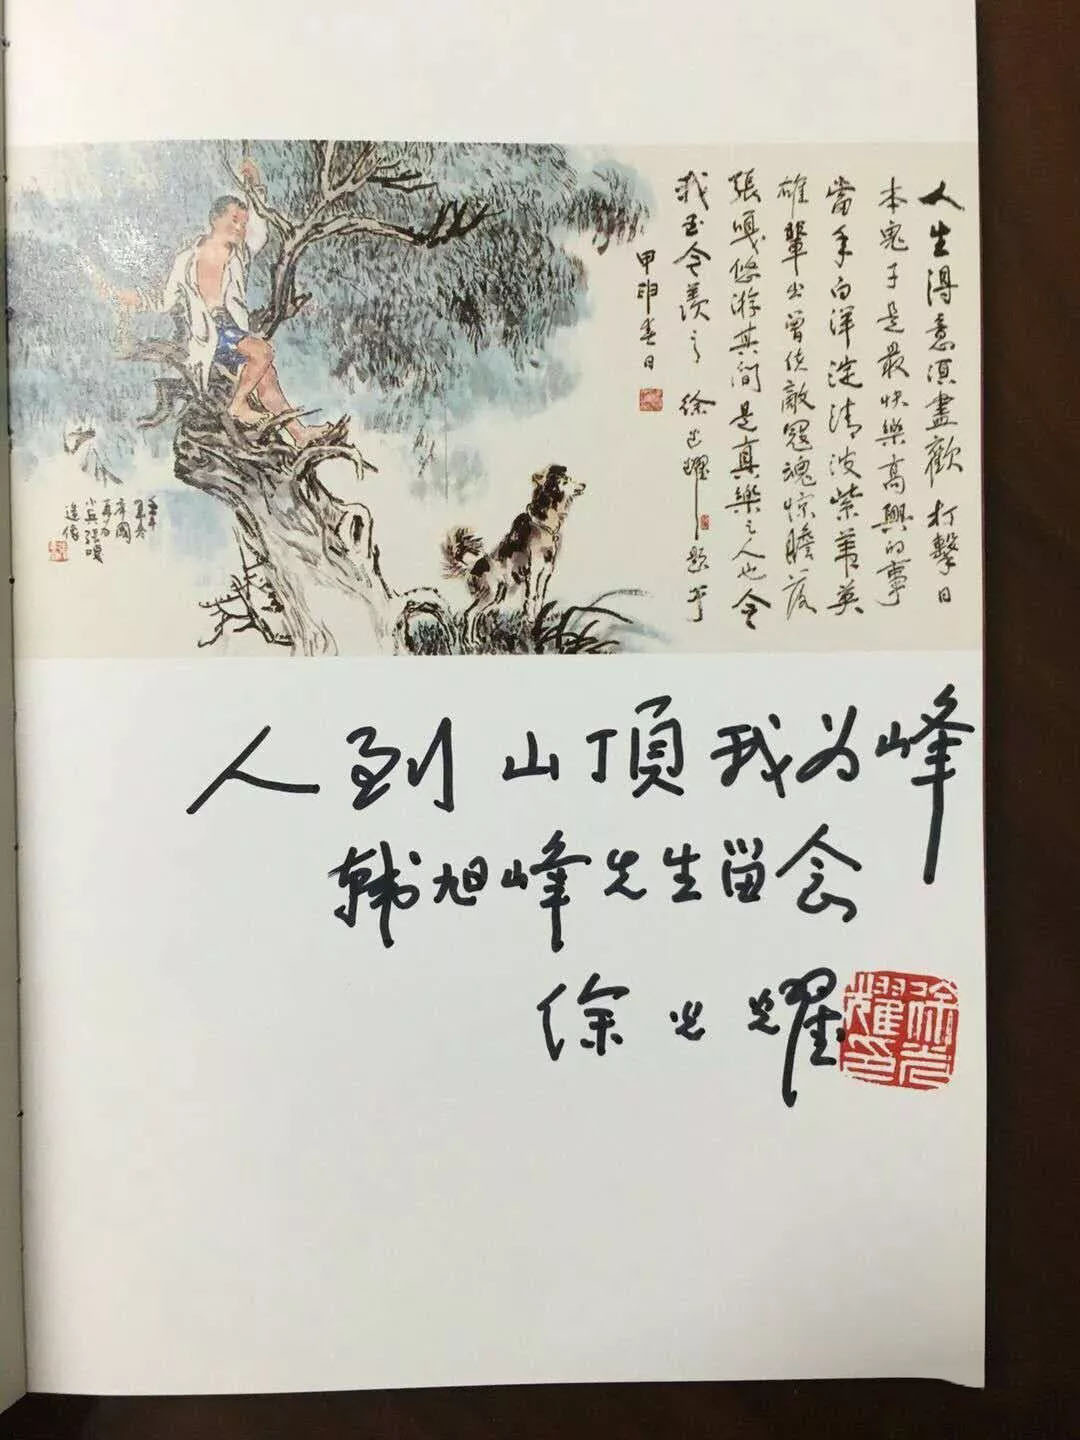 人生得意须尽歡 打擊日
本鬼子是最快樂高興的事
當年白洋淀清波紫葦英
雄輩出曾使敵寇魂惊膽落
張嘎悠游其间是真樂之人也令
我至今羨之 徐光耀 題
甲申春日
小兵張嘎
造像
人到山頂我为峰
韩旭峰先生留念
徐光耀
徐光耀印